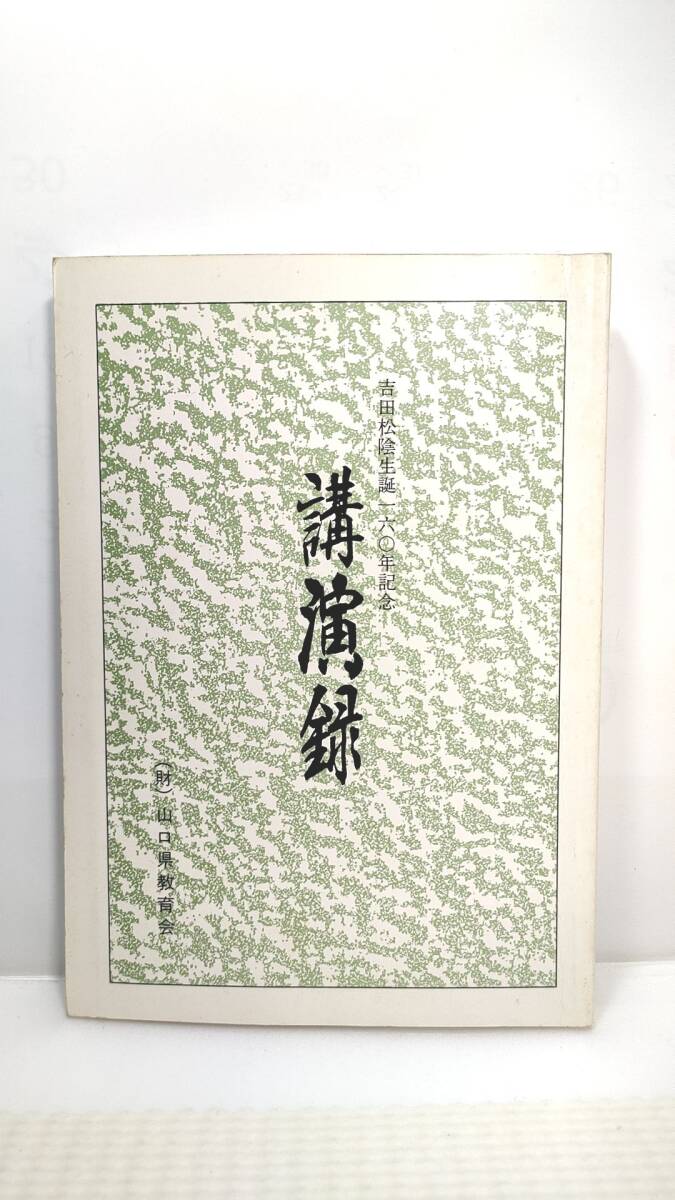 吉田松陰生誕一六〇年記念
講演録
(財)山口県教育会